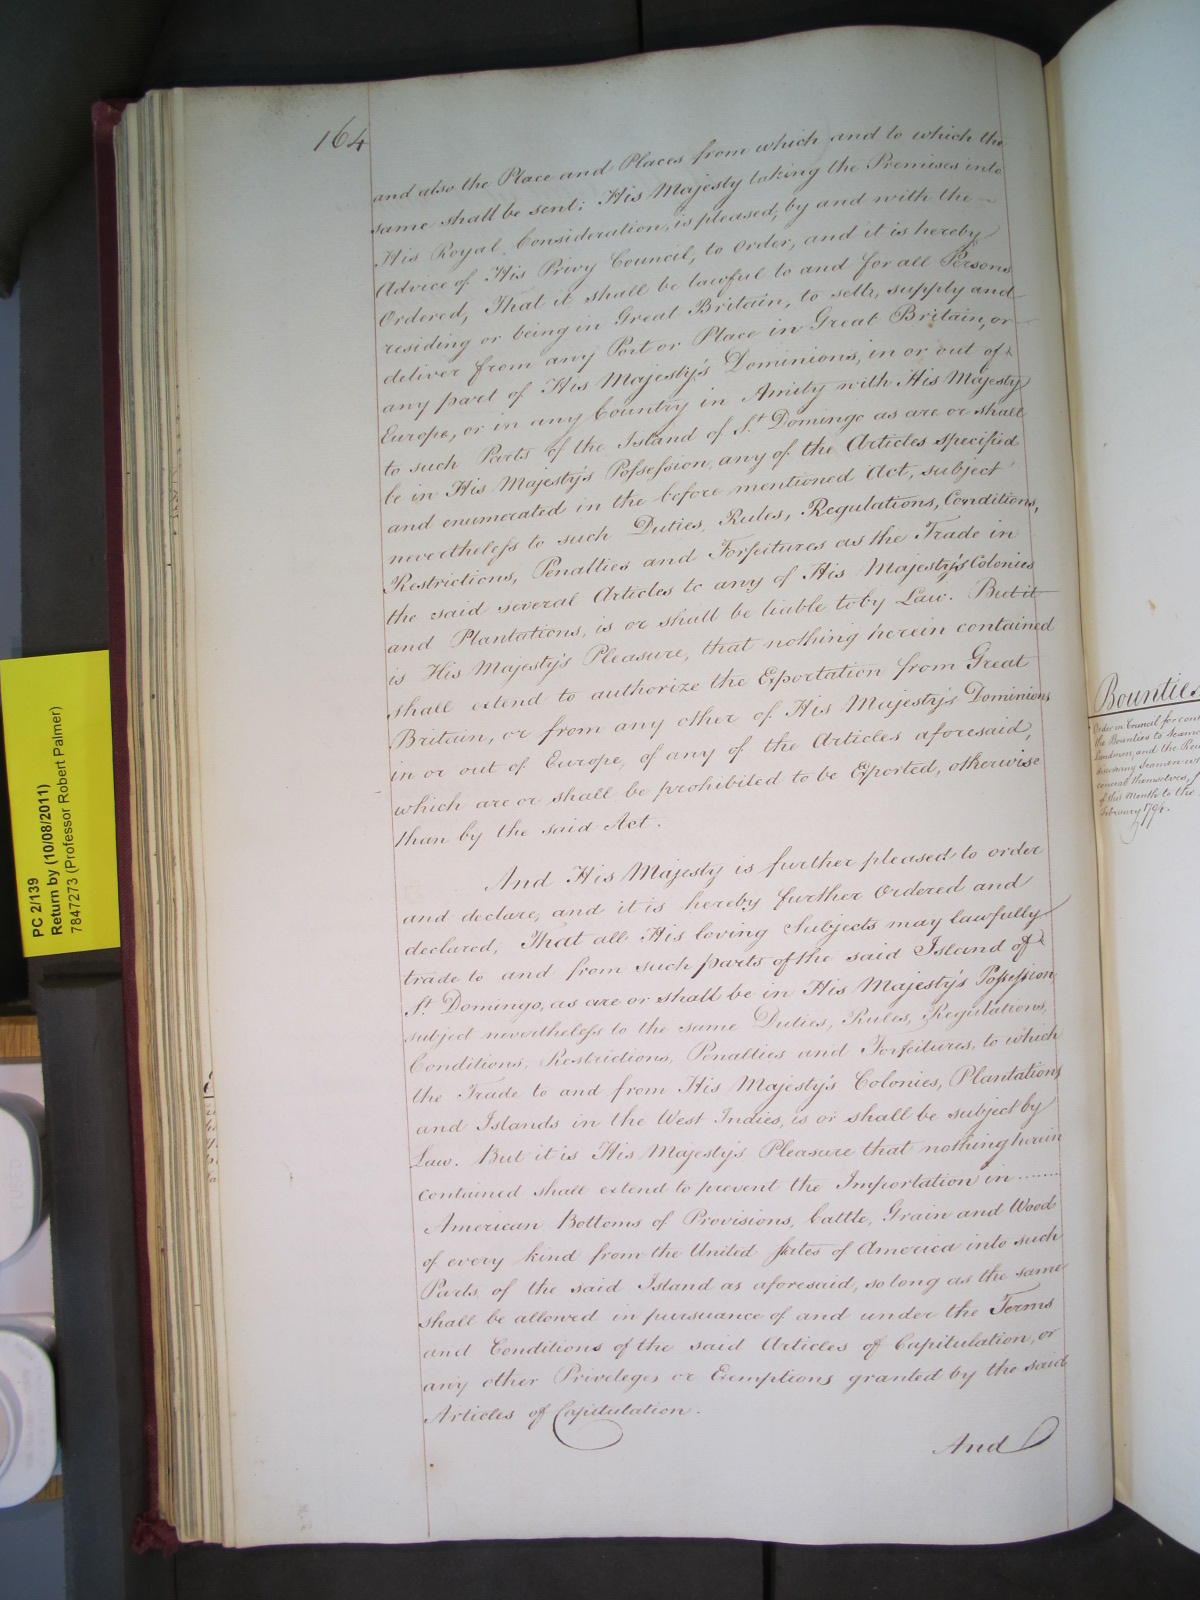 164
and also the Place and Places from which and to which the
same shall be sent; His Majesty taking the Premises into
His Royal Consideration, is pleased, by and with the
Advice of His Privy Council, to Order, and it is hereby
Ordered, That it shall be lawful to and for all Persons
residing or being in Great Britain, to sell, supply and
deliver from any Port or Place in Great Britain, or
any part of His Majesty's Dominions, in or out of
Europe, or in any Country in Amity with His Majesty
to such Parts of the Island of St. Domingo as are or shall
be in His Majesty's Possession, any of the Articles specified
and enumerated in the before mentioned Act, subject
nevertheless to such Duties, Rules, Regulations, Conditions,
Restrictions, Penalties and Forfeitures as the Trade in
the said several Articles to any of His Majesty's Colonies
and Plantations, is or shall be liable to by Law. But it
is His Majesty's Pleasure, that nothing herein contained
shall extend to authorize the Exportation from Great
Britain, or from any other of His Majesty's Dominions
in or out of Europe, of any of the Articles aforesaid,
which are or shall be prohibited to be Exported, otherwise
than by the said Act.
And His Majesty is further pleased to order
and declare, and it is hereby further Ordered and
declared, That all His loving Subjects may lawfully
trade to and from such parts of the said Island of
St. Domingo, as are or shall be in His Majesty's Possession,
subject nevertheless to the same Duties, Rules, Regulations,
Conditions, Restrictions, Penalties and Forfeitures, to which
the Trade to and from His Majesty's Colonies, Plantations
and Islands in the West Indies, is or shall be subject by
Law. But it is His Majesty's Pleasure that nothing herein
contained shall extend to prevent the Importation in ........
American Bottoms of Provisions, Cattle, Grain and Wood
of every kind from the United States of America into such
Parts, of the said Island as aforesaid, so long as the same
shall be allowed in pursuance of and under the Terms
and Conditions of the said Articles of Capitulation, or
any other Priveleges or Exemptions granted by the said
Articles of Capitulation.
And
Bounties
Order in Council for con
the Bounties to Seamen
Landmen, and the Re
discovering Seamen w
conceal themselves, f
of this Month to the
February 1794.
PC 2/139
Return by (10/08/2011)
7847273 (Professor Robert Palmer)